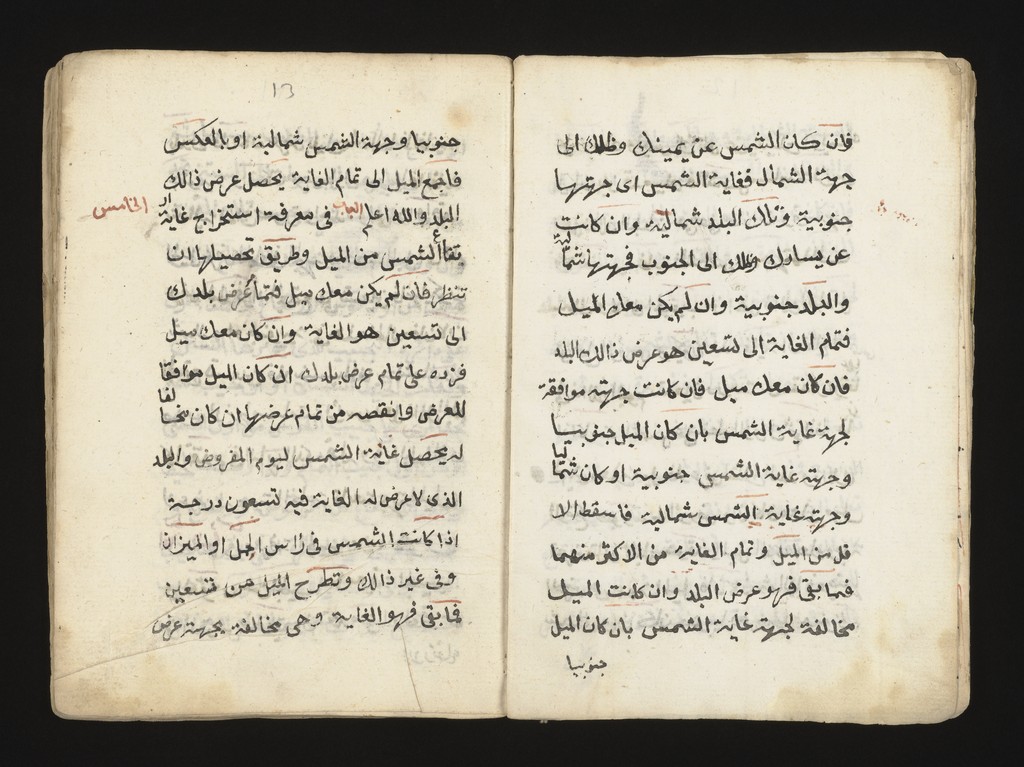 فان كان الشمس عن يمينك وظلك الى
جهة الشمال فغاية الشمس اى جهتها
جنوبية وتلك البلد شمالية وان كانت
عن يسارك وظلك الى الجنوب فجهتها شمالية
والبلد جنوبية وان لم يكن معك الميل
فتمام الغاية الى تسعين هو عرض ذالك البلد
فان كان معك ميل فان كانت جهته موافقة
لجهة غاية الشمس بان كان الميل جنوبيا
وجهته غاية الشمس جنوبية او كان شماليا
وجهته غاية الشمس شمالية فاسقط الا
قل من الميل وتمام الغاية من الاكثر منهما
فما بقى فهو عرض البلد وان كانت الميل
مخالفة لجهة غاية الشمس بان كان الميل
جنوبيا
13
جنوبيا وجهة الشمس شمالية او بالعكس
فاجمع الميل الى تمام الغاية يحصل عرض ذالك
البلد والله اعلم الباب الخامس فى معرفة استخراج غاية ار
تفاع الشمس من الميل وطريق تحصيلها ان
تنظر فان لم يكن معك ميل فتمام عرض بلدك
الى تسعين هو الغاية وان كان معك ميل
فزده على تمام عرض بلدك ان كان الميل موافقا
للعرض وانقصه من تمام عرضها ان كان مخالفا
له يحصل غاية الشمس ليوم المفروض والبلد
الذى لا عرض له الغاية فيه تسعون درجة
اذا كانت الشمس فى راس الحمل او الميزان
وفى غير ذالك وتطرح الميل من تسعين
فما بقى فهو الغاية وهى مخالفة بجهة عرض